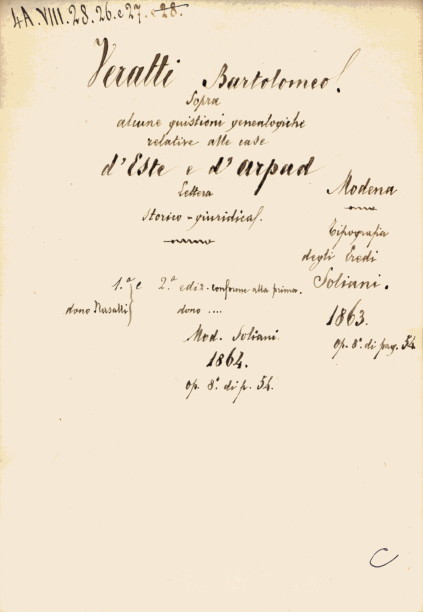 4A.VIII.28.26.e 27. e 28.
Veratti Bartolomeo.
Sopra
alcune quistioni genealogiche
relative alle case
d'Este e d'Arpad
Lettera
storico-giuridica.
Modena
Tipografia
degli Eredi
Soliani.
1863.
op. 8.° di pag. 54.
1.ª e 2.ª ediz. conforme alla prima.
dono Rasalti
dono ....
Mod. Soliani.
1864.
op. 8.° di p. 54.
C